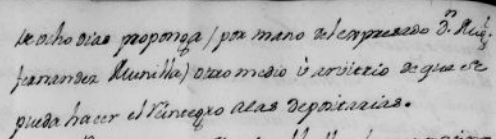 de ocho dias proponga (por mano del expresado Dn. Mig.l
fernandez Munilla) otro medio ù arvitrio de que se
pueda hacer el Reintegro a las depositarias.